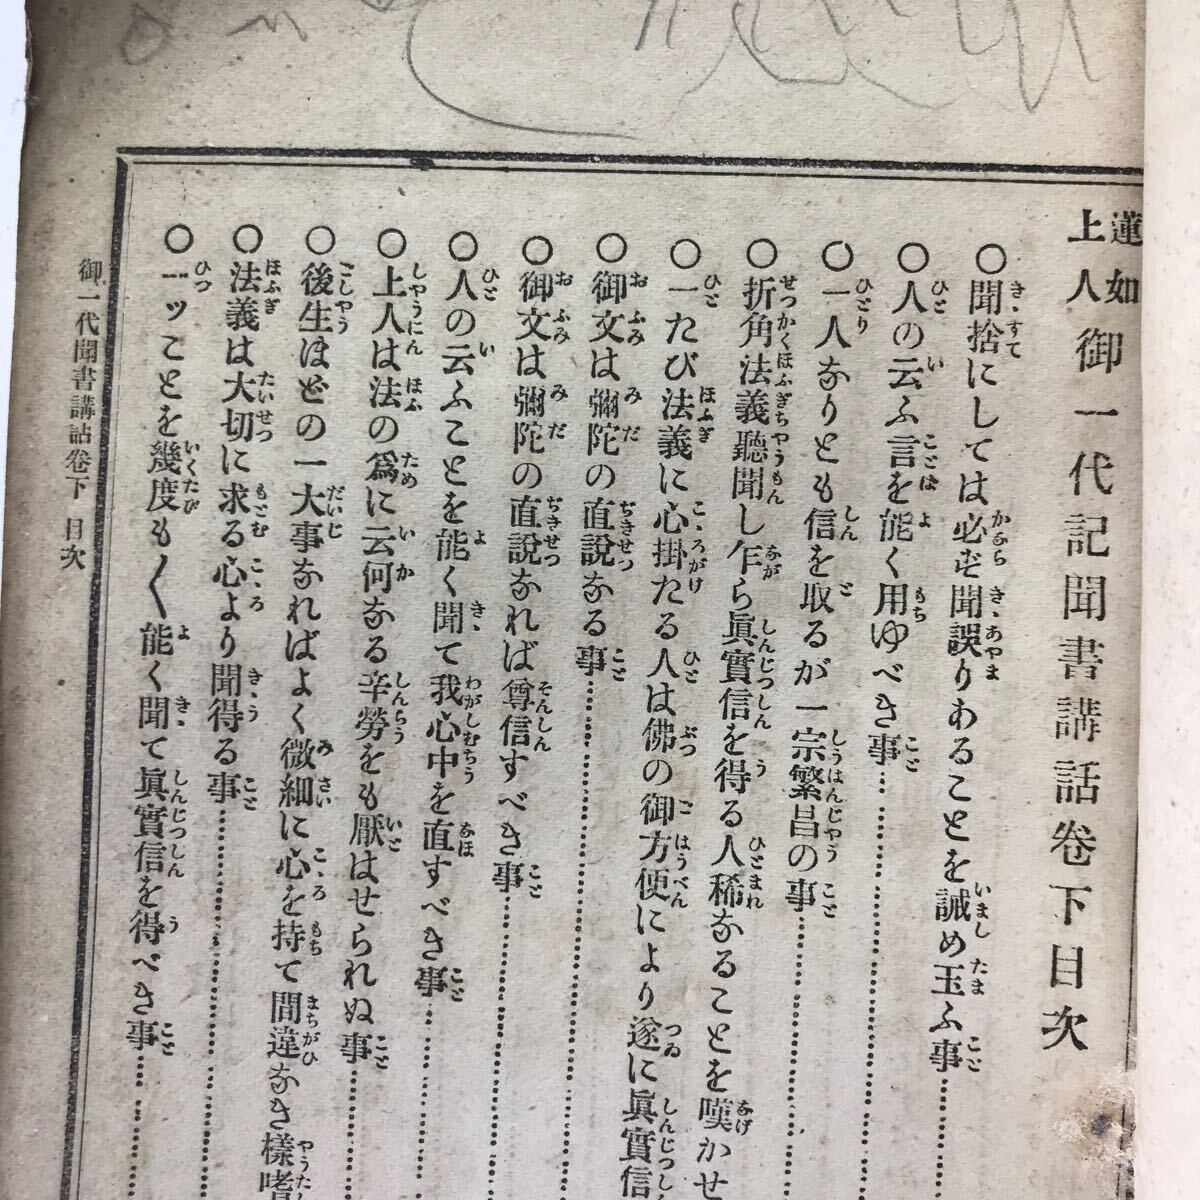 蓮如上人御一代記聞書講話卷下目次
〇聞捨にしては必ず聞誤りあることを誡め玉ふ事
〇人の云ふ言を能く用ゆべき事
〇一人なりとも信を取るが一宗繁昌の事
〇折角法義聽聞し乍ら眞實信を得る人稀なることを嘆かせ
〇一たび法義に心掛たる人は佛の御方便により遂に眞實信
〇御文は彌陀の直說なる事
〇御文は彌陀の直說なれば尊信すべき事
〇人の云ふことを能く聞て我心中を直すべき事
〇上人は法の爲に云何なる辛勞をも厭はせられぬ事
〇後生はどの一大事なればよく微細に心を持て間違なき樣嗜
〇法義は大切に求る心より聞得る事
〇一ッことを幾度も〱能く聞て眞實信を得べき事
御一代聞書講話卷下 目次